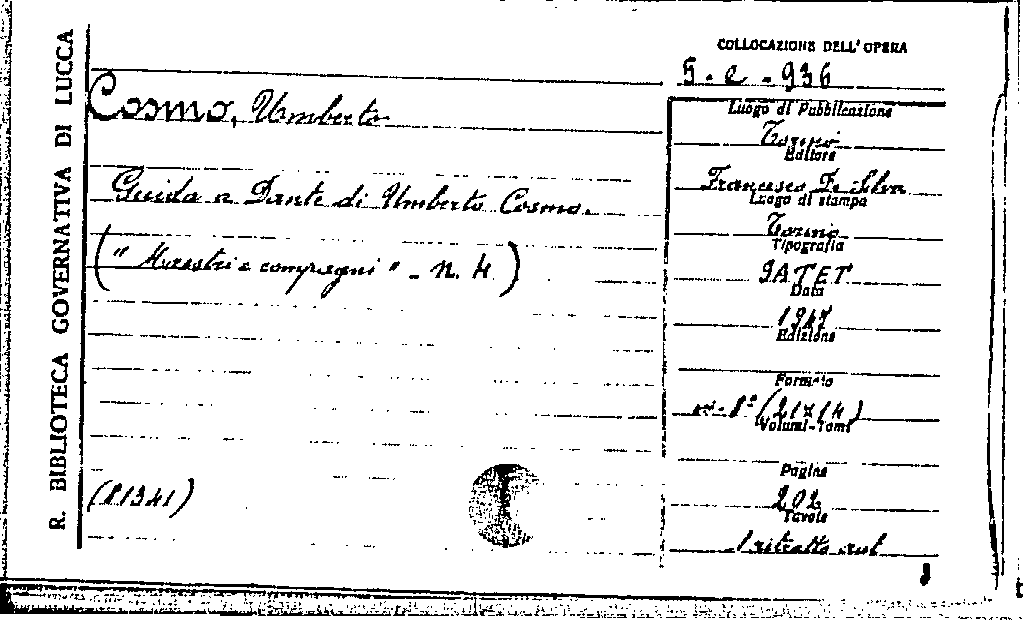 R. BIBLIOTECA GOVERNATIVA DI LUCCA
COLLOCAZIONE DELL' OPERA
5 - e - 936
Cosmo, Umberto
Guida a Dante di Umberto Cosmo.
("Maestri e compagni" - n. 4)
(81341)
Luogo di Pubblicazione
Torino
Editore
Francesco De Silva
Luogo di stampa
Torino
Tipografia
SATET
Data
1947
Edizione
Formato
in-8° (21x14)
Volumi-Tomi
Pagine
202
Tavole
1 ritratto